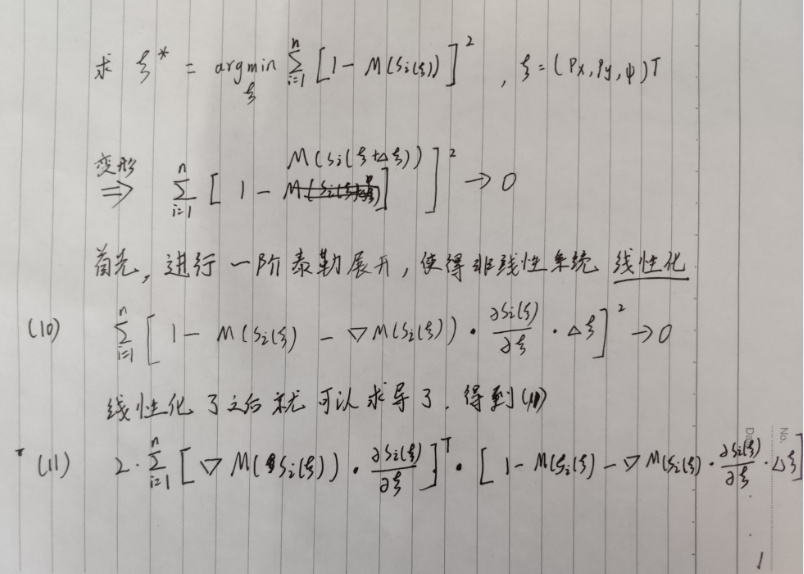 求 ξ* = argmin_ξ Σ_{i=1}^{n} [1 - M(Si(ξ))]², ξ = (Px, Py, ψ)T
变形 ⇒ Σ_{i=1}^{n} [1 - M(Si(ξ+Δξ))]² → 0
首先, 进行一阶泰勒展开, 使得非线性系统 线性化
(10) Σ_{i=1}^{n} [1 - M(Si(ξ) - ∇M(Si(ξ)) · ∂Si(ξ)/∂ξ · Δξ]² → 0
线性化了之后就可以求导了. 得到(11)
(11) 2 · Σ_{i=1}^{n} [∇M(Si(ξ)) · ∂Si(ξ)/∂ξ]^T · [1 - M(Si(ξ) - ∇M(Si(ξ) · ∂Si(ξ)/∂ξ · Δξ]
No.
1